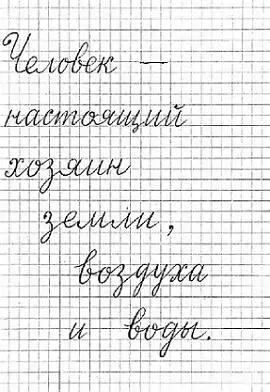 Человек —
настоящий
хозяин
земли,
воздуха
и воды.